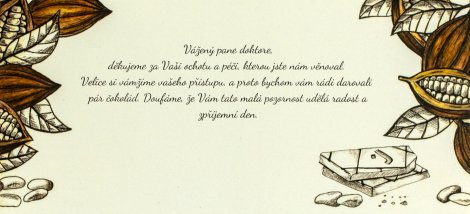 Vážený pane doktore,
děkujeme za Vaši ochotu a péči, kterou jste nám věnoval.
Velice si vámžíme vašeho přístupu, a proto bychom vám rádi darovali
pár čokolád. Doufáme, že Vám tato malá pozornost udělá radost a
zpříjemní den.